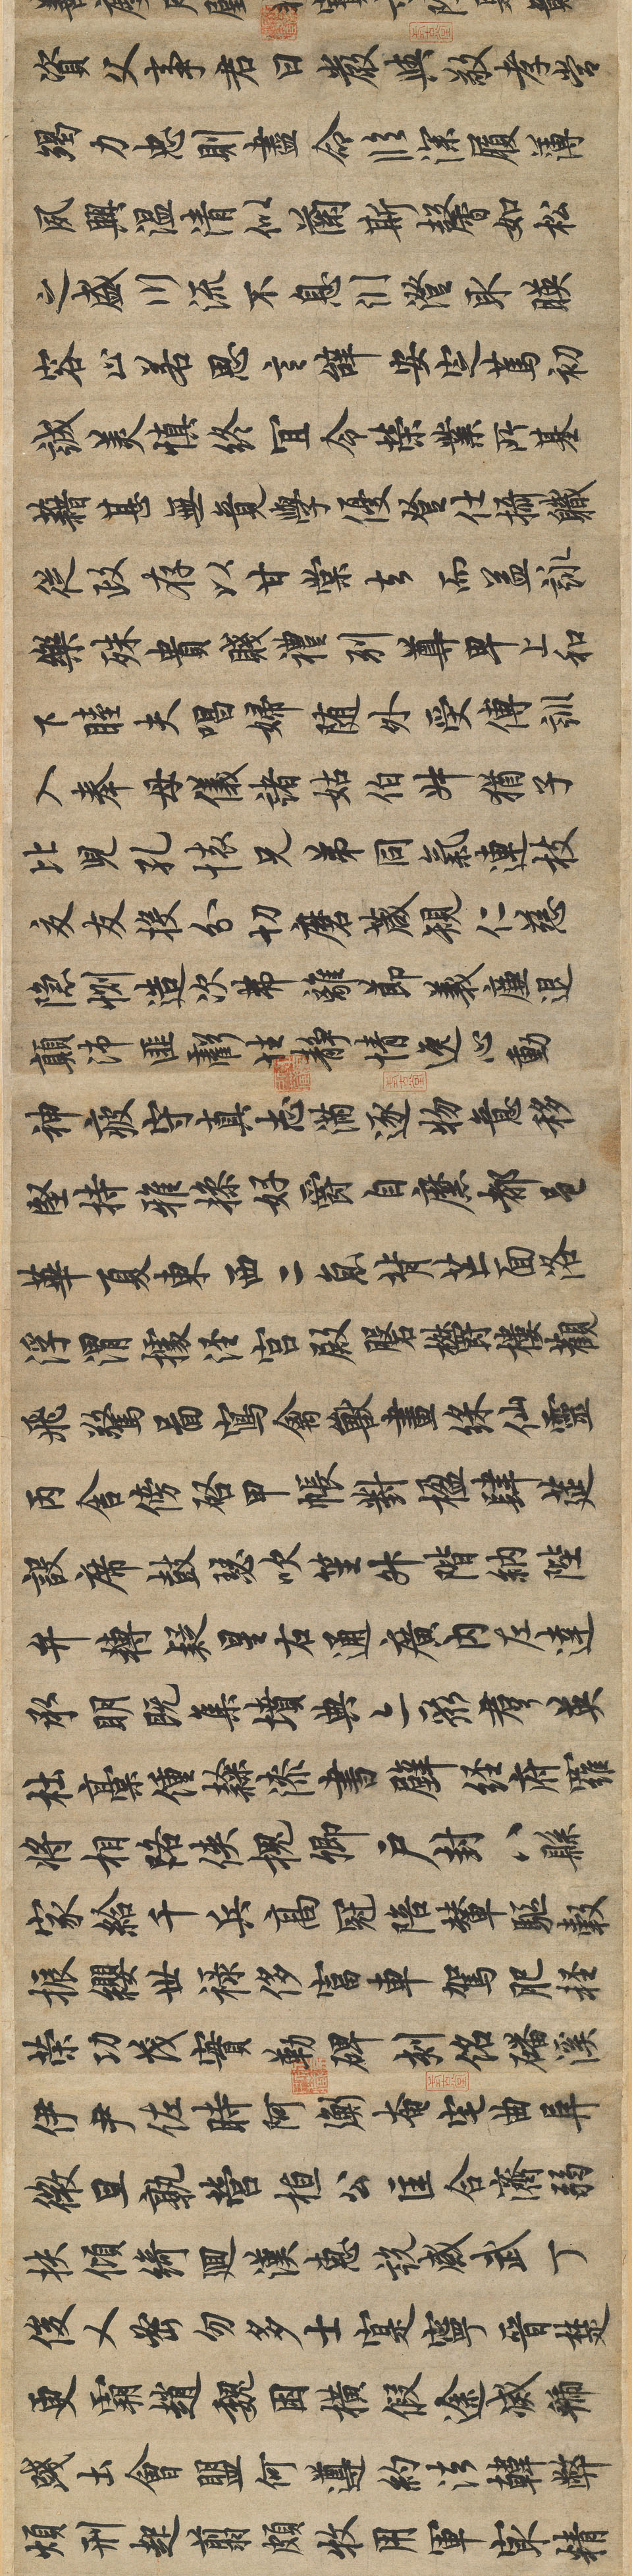 資父事君曰嚴與敬孝當
竭力忠則盡命臨深履薄
夙興溫清似蘭斯馨如松
之盛川流不息淵澄取暎
容止若思言辭安定篤初
誠美慎終宜令榮業所基
藉甚無竟學優登仕攝職
從政存以甘棠去而益詠
樂殊貴賤禮別尊卑上和
下睦夫唱婦随外受傅訓
入奉母儀諸姑伯叔猶子
比兒孔懷兄弟同氣連枝
交友投分切磨箴規仁慈
隱惻造次弗離節義廉退
顛沛匪虧性靜情逸心動
神疲守真志滿逐物意移
堅持雅操好爵自縻都邑
華夏東西二京背芒面洛
浮渭據涇宮殿磐鬱樓觀
飛驚圖寫禽獸畫綵仙靈
丙舍傍啓甲帳對楹肆筵
設席鼓瑟吹笙升階納陛
弁轉疑星右通廣內左達
承明既集墳典亦聚群英
杜稾鍾隸漆書壁經府羅
將相路俠槐卿戶封八縣
家給千兵高冠陪輦驅轂
振纓世祿侈富車駕肥輕
策功茂實勒碑刻銘磻溪
伊尹佐時阿衡奄宅曲阜
微旦孰營桓公匡合濟弱
扶傾綺迴漢惠說感武丁
俊乂密勿多士寔寧晉楚
更霸趙魏困橫假途滅虢
踐土會盟何遵約法韓弊
煩刑起翦頗牧用軍冣精